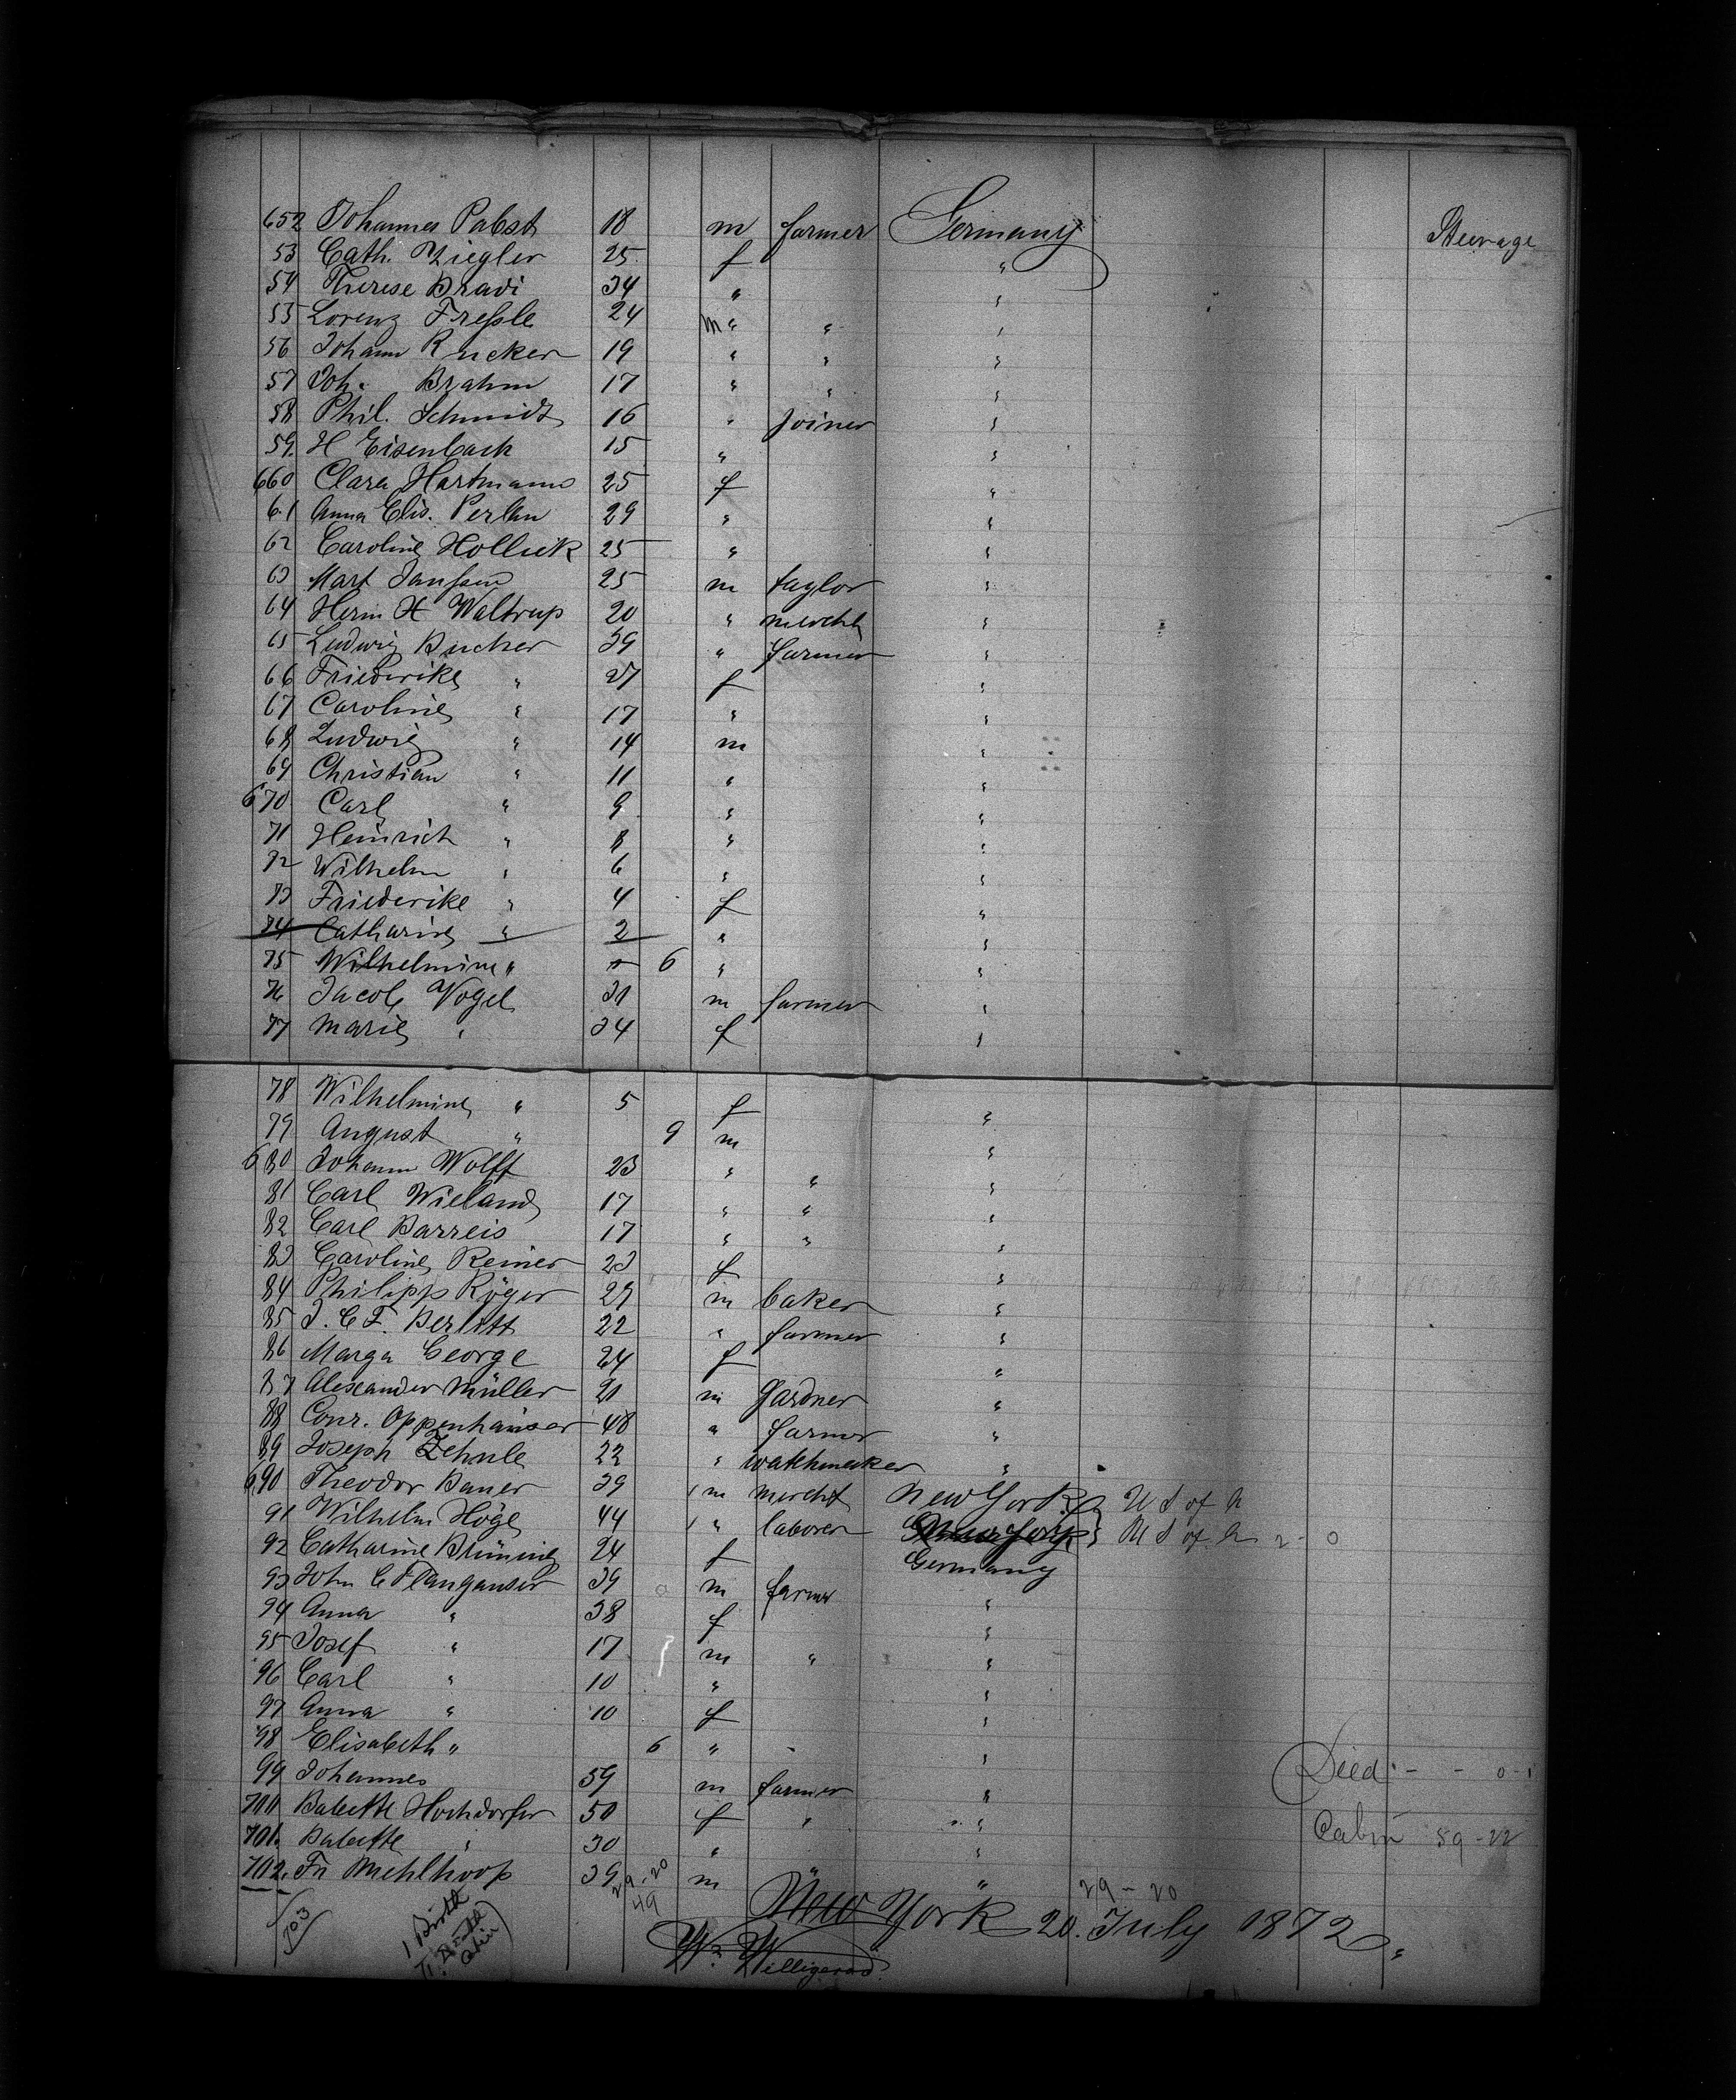 652 Johannes Pabst 18 m farmer Germany Steerage
53 Cath. Ziegler 25 f "
54 Therese Bradi 34 " "
55 Lorenz Freßle 24 m " " "
56 Johann Rucker 19 " " "
57 Joh. Brahm 17 " " "
58 Phil. Schmidt 16 " joiner "
59. H Eisenbach 15 " "
660 Clara Hartmann 25 f "
61 Anna Elis. 29 " "
62 Caroline Hollick 25 " "
63 Mart Janßen 25 m taylor "
64 Herm H Waltrup 20 " mercht "
65 Ludwig Bucher 39 " farmer "
66 Friederike " 37 f "
67 Caroline " 17 " "
68 Ludwig " 14 m "
69 Christian " 11 " "
670 Carl " 9 " "
71 Heinrich " 8 " "
72 Wilhelm " 6 " "
73 Friederike " 4 f "
74 Catharine " 2 " "
75 Wilhelmine " 6 " "
76 Jacob Vogel 31 m farmer "
77 Marie " 34 f "
78 Wilhelmine " 5 f "
79 August " 9 m "
680 Johann Wolff 23 " " "
81 Carl Wieland 17 " " "
82 Carl Barreis 17 " " "
83 Caroline Reiner 23 f "
84 Philipp Röger 29 m baker "
85 J. C F. Berlitt 22 " farmer "
86 Marga George 24 f "
87 Alexander Müller 21 m Gardner "
88 Conr. Oppenhäuser 48 " farmer "
89 Joseph Zehnle 22 " watchmaker "
690 Theodor Bauer 39 m mercht New York U S of A
91 Wilhelm Höge 44 " laborer U S of A 2 - 0
92 Catharine Brüning 24 f Germany
93 John C Flanganser 39 m farmer "
94 Anna " 38 f "
95 Josef " 17 m " "
96 Carl " 10 " "
97 Anna " 10 f "
98 Elisabeth " 6 " "
99 Johannes 59 m farmer "
700 Babette Hochdorfer 50 f " "
701. Babette " 30 " "
702. Fr Mehlhoop 39 m " "
Died - - 0-1
Cabin 59-22
29-20
49
29-20
703
1 Birth
New York 20. July 1872.
Wm Willigerod